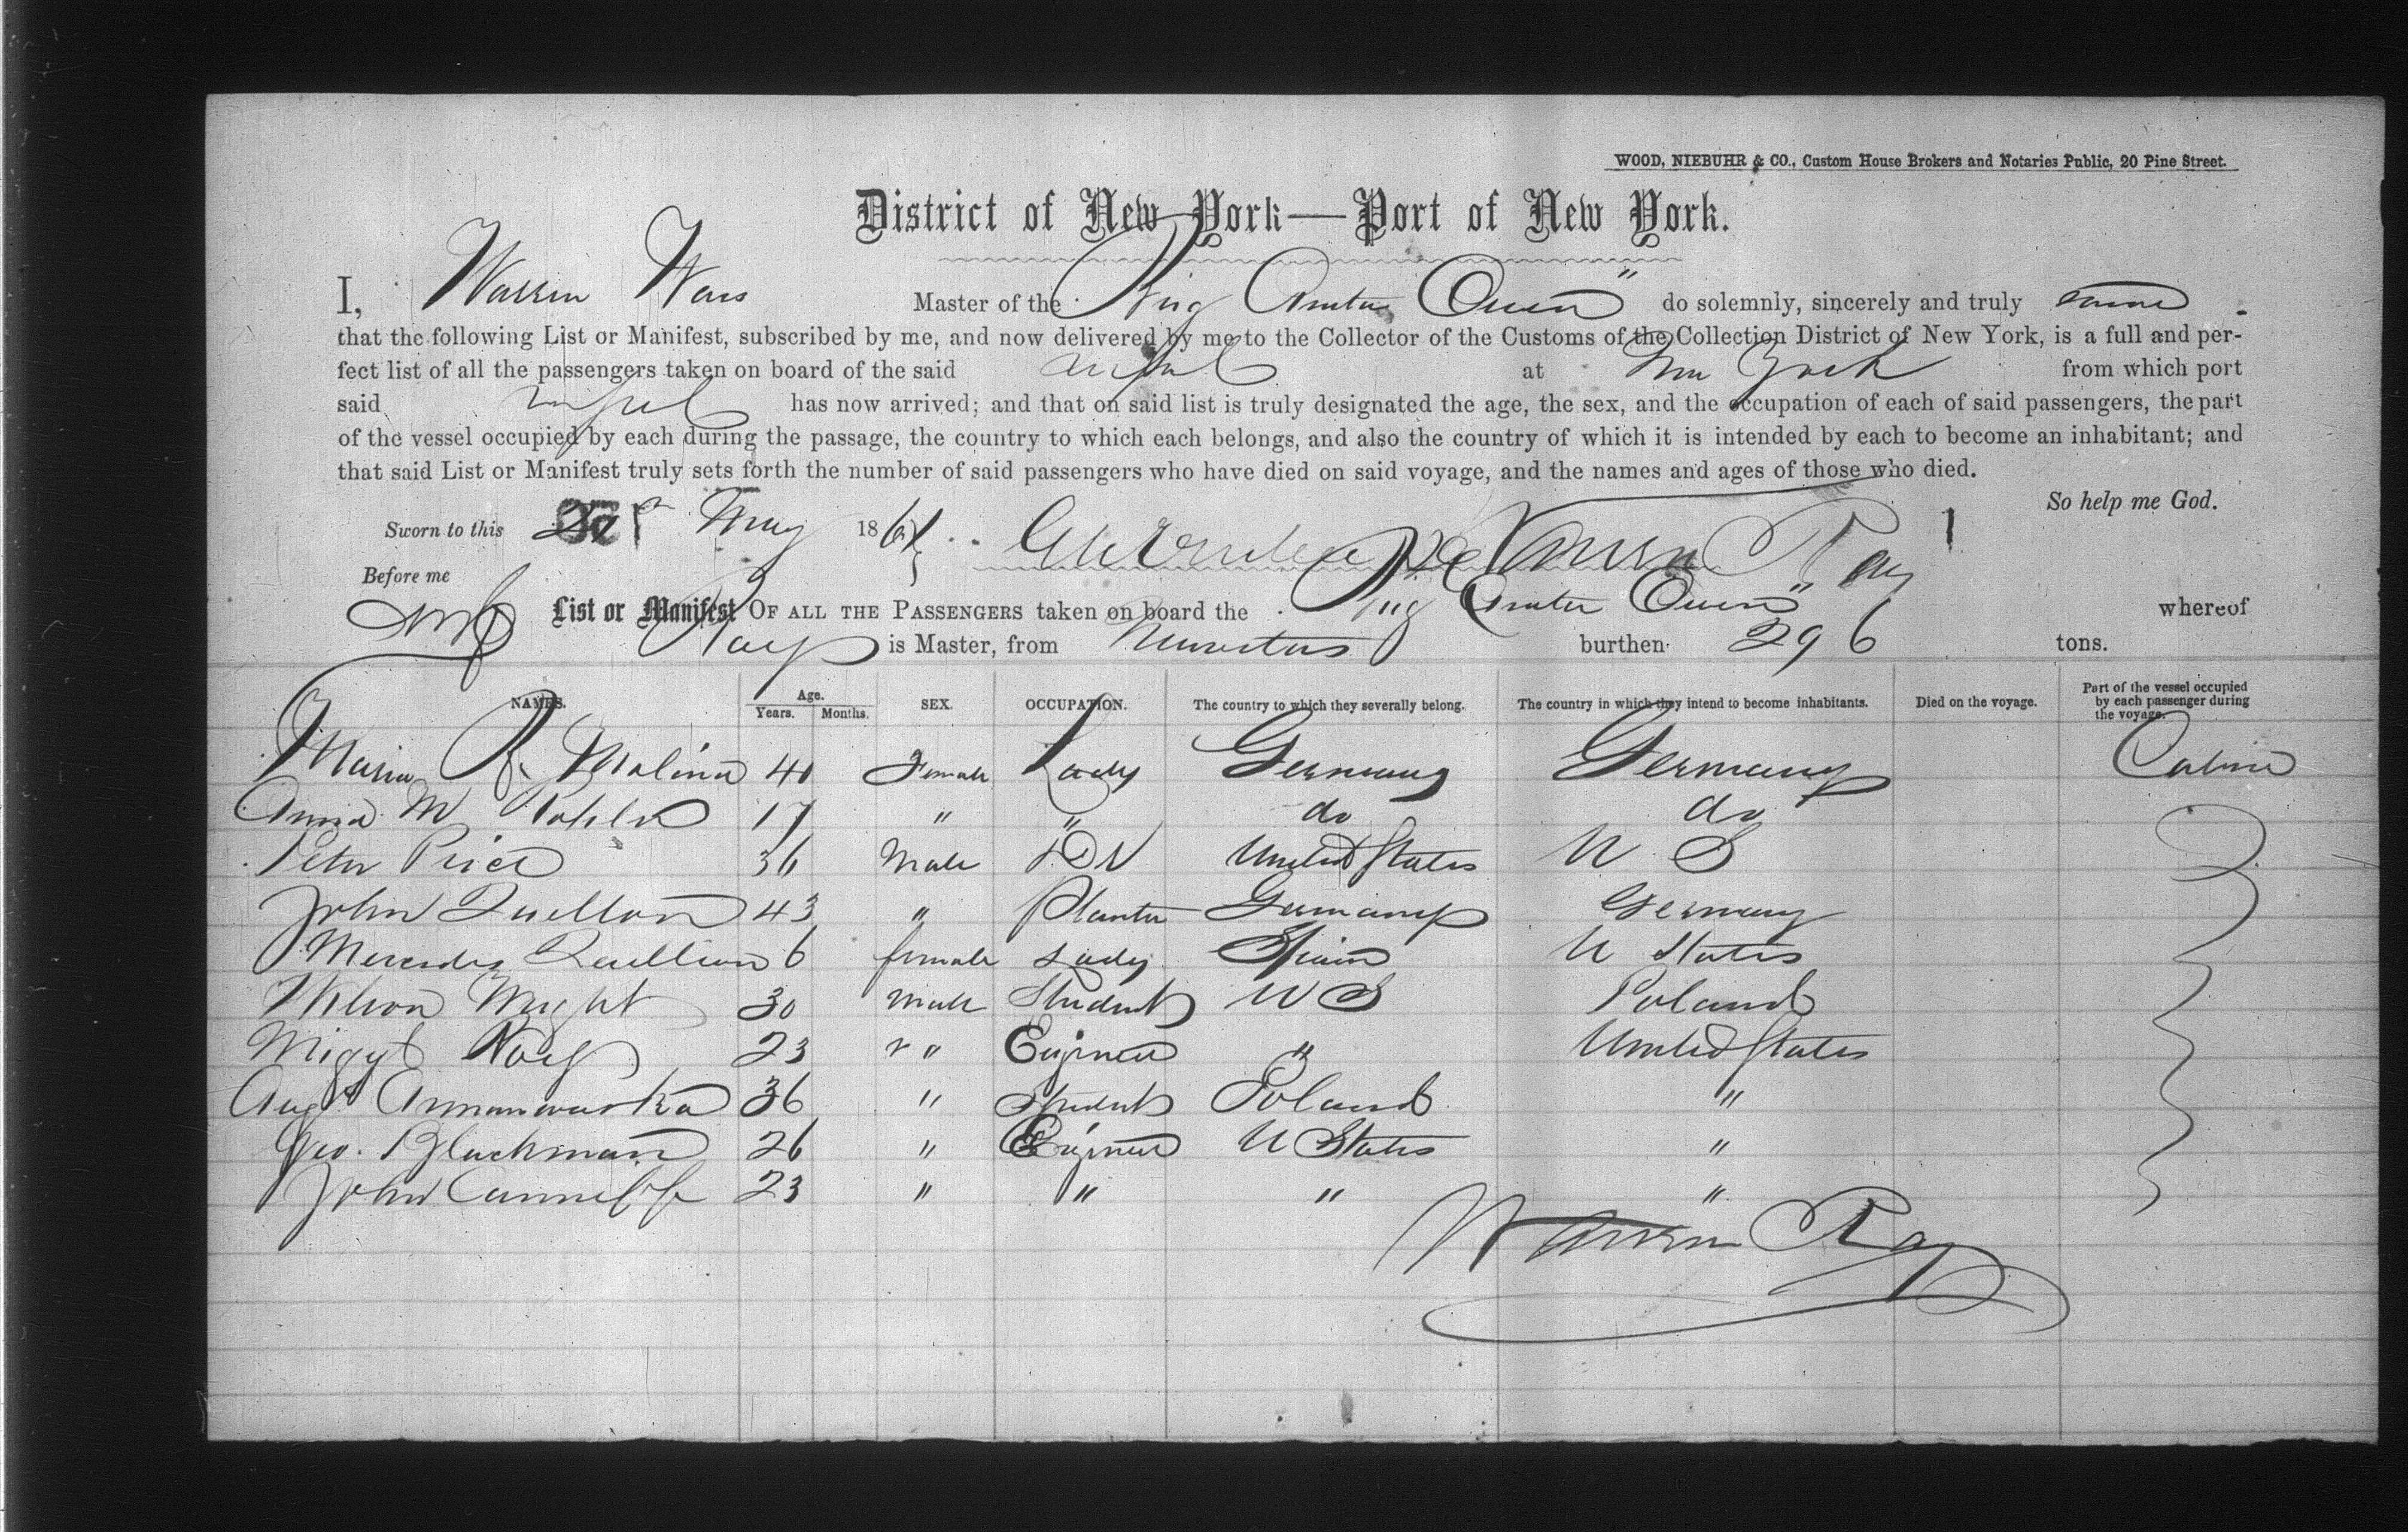 WOOD, NIEBUHR & CO., Custom House Brokers and Notaries Public, 20 Pine Street.
District of New York—Port of New York.
I, Warren Master of the Brig Owen" do solemnly, sincerely and truly
that the following List or Manifest, subscribed by me, and now delivered by me to the Collector of the Customs of the Collection District of New York, is a full and per-
fect list of all the passengers taken on board of the said at New York from which port
said has now arrived; and that on said list is truly designated the age, the sex, and the occupation of each of said passengers, the part
of the vessel occupied by each during the passage, the country to which each belongs, and also the country of which it is intended by each to become an inhabitant; and
that said List or Manifest truly sets forth the number of said passengers who have died on said voyage, and the names and ages of those who died.
So help me God.
Sworn to this May 186 Warren Ray
Before me
List or Manifest OF ALL THE PASSENGERS taken on board the Brig Owen" whereof
Ray is Master, from burthen 296 tons.
NAMES. Age. Years. Months. SEX. OCCUPATION. The country to which they severally belong. The country in which they intend to become inhabitants. Died on the voyage. Part of the vessel occupied by each passenger during the voyage.
Maria R. Molina 40 Female Lady Germany Germany Cabin
Anna M 17 " " do do
Peter Price 36 Male United States U S
John 43 " Planter Germany Germany
Mercedes 6 female Lady Spain U States
Wilson Wright 30 male Student U S Poland
23 " " Engineer " United States
Augt 36 " Student Poland "
Geo. Blackman 26 " Engineer U States "
John Cunniff 23 " " " "
Warren Ray